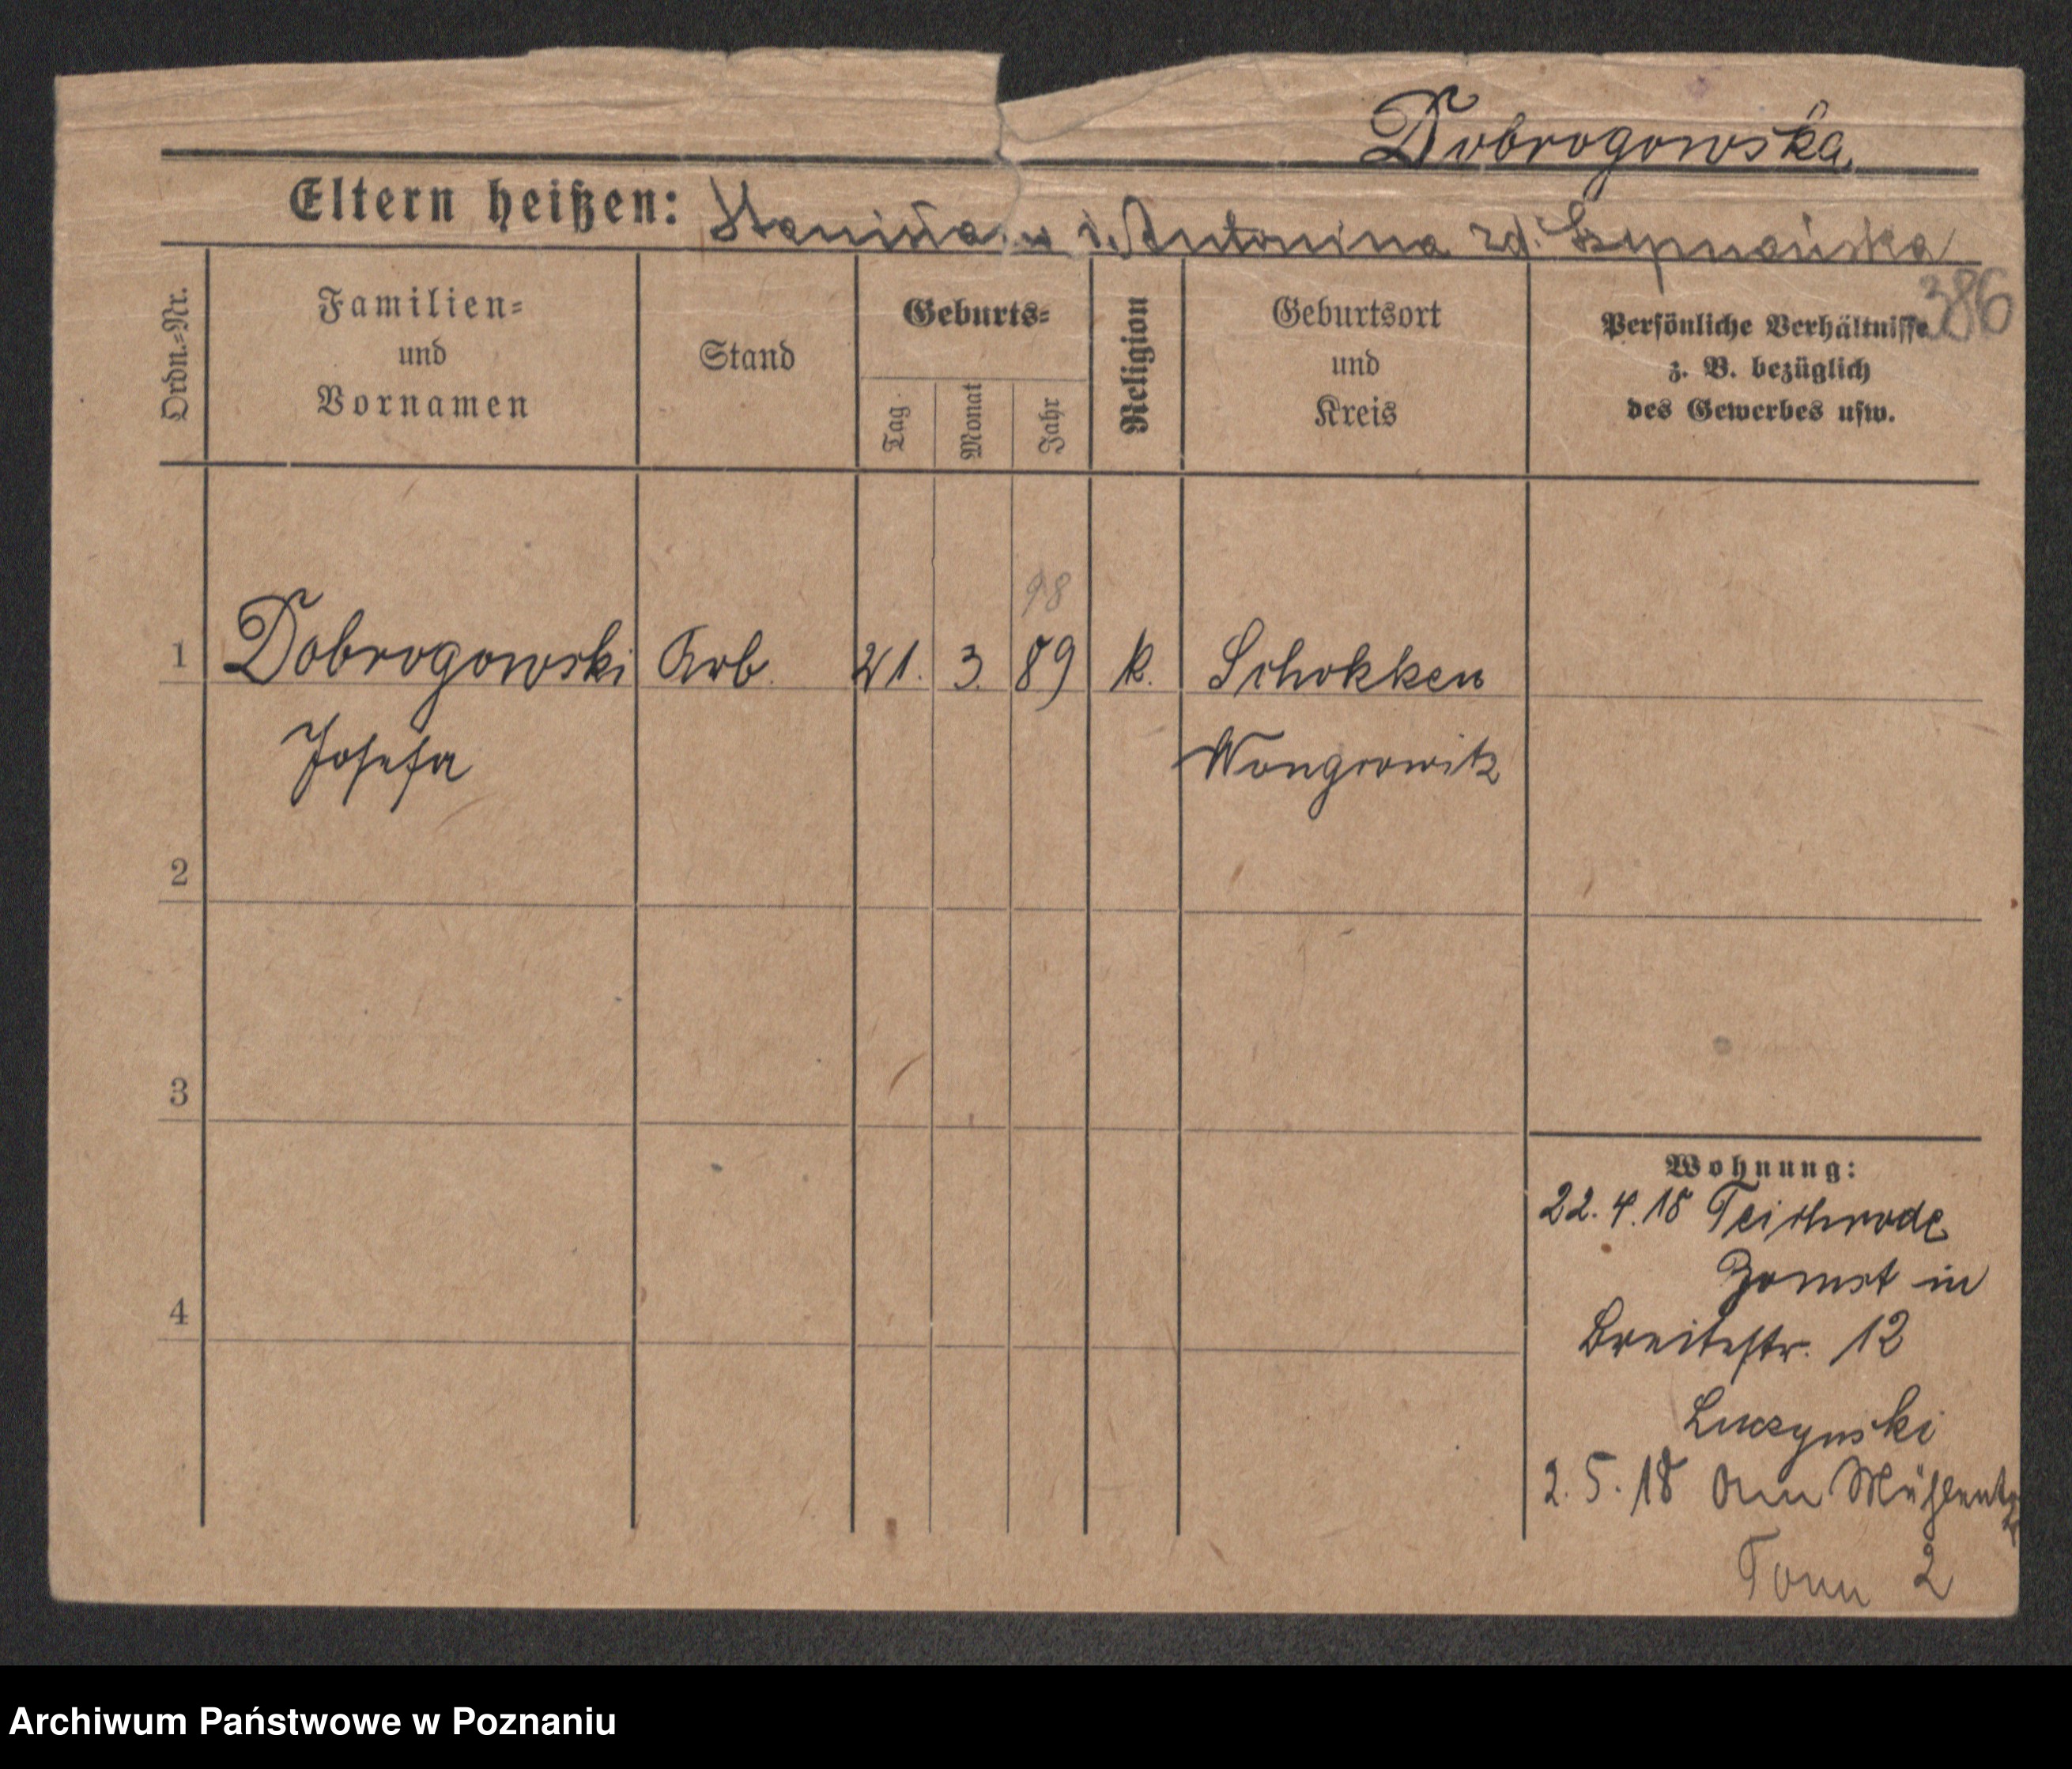 Dobrogowska
Eltern heißen: Stanisław i Antonina zd. Szymańska
386
Ordn.-Nr.
Familien-
und
Vornamen
Stand
Geburts-
Tag
Monat
Jahr
Religion
Geburtsort
und
Kreis
Persönliche Verhältnisse
z. B. bezüglich
des Gewerbes usw.
98
1 Dobrogowski Arb. 21. 3. 89 k. Schokken
Josefa Wongrowitz
2
3
4
Wohnung:
22.4.18 Teichrode
Bomst in
Breitestr. 12
Luczynski
2.5.18 Am
2
Archiwum Państwowe w Poznaniu